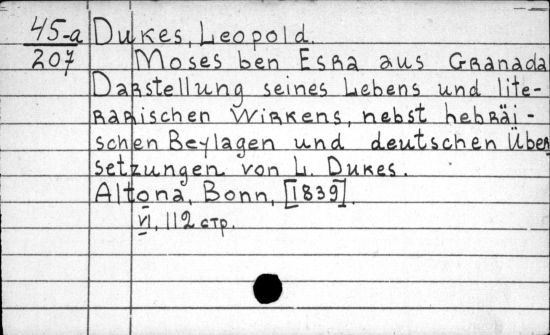 45-a Dukes, Leopold.
207 Moses ben Esra aus Granada
Darstellung seines Lebens und lite-
rarischen Wirkens, nebst hebräi-
schen Beylagen und deutschen Über
setzungen von L. Dukes.
Altona, Bonn, [1839].
VI, 112 стр.